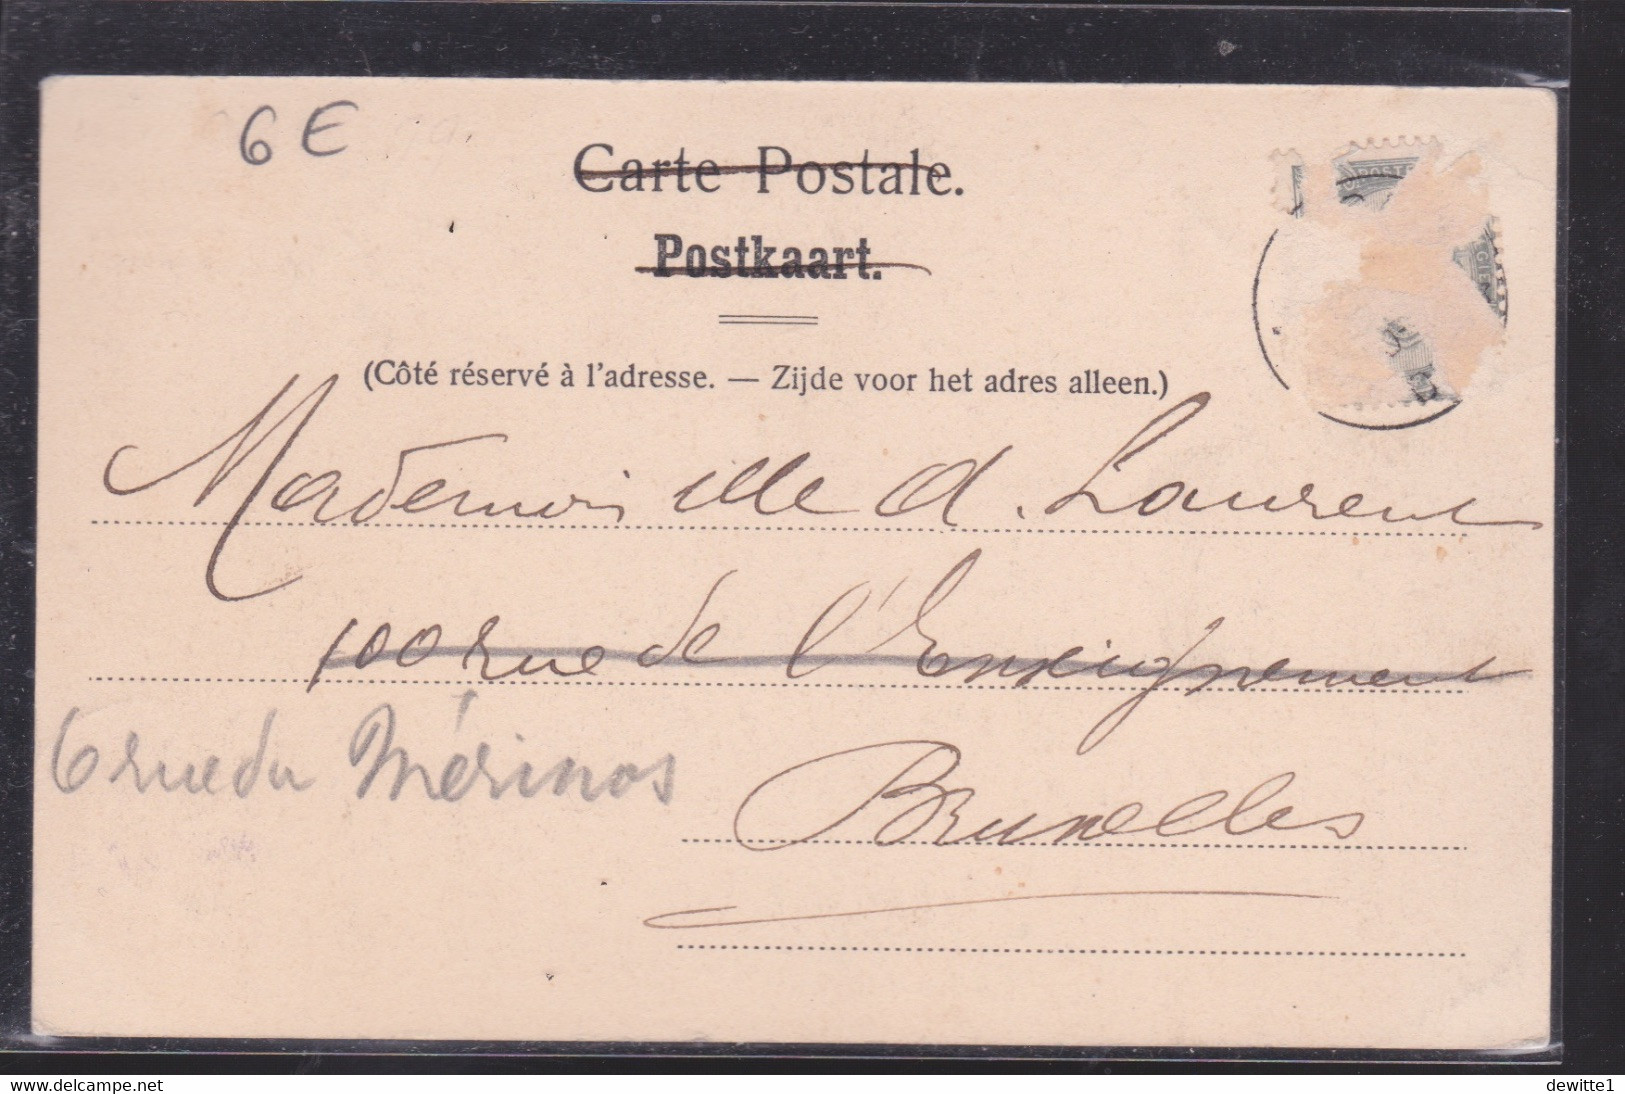 6 E
Carte Postale.
Postkaart.
(Côté réservé à l'adresse. — Zijde voor het adres alleen.)
Mademoiselle A. Laurent
100 rue de l'Enseignement
6 rue du Mérinos
Bruxelles
www.delcampe.net
dewitte1